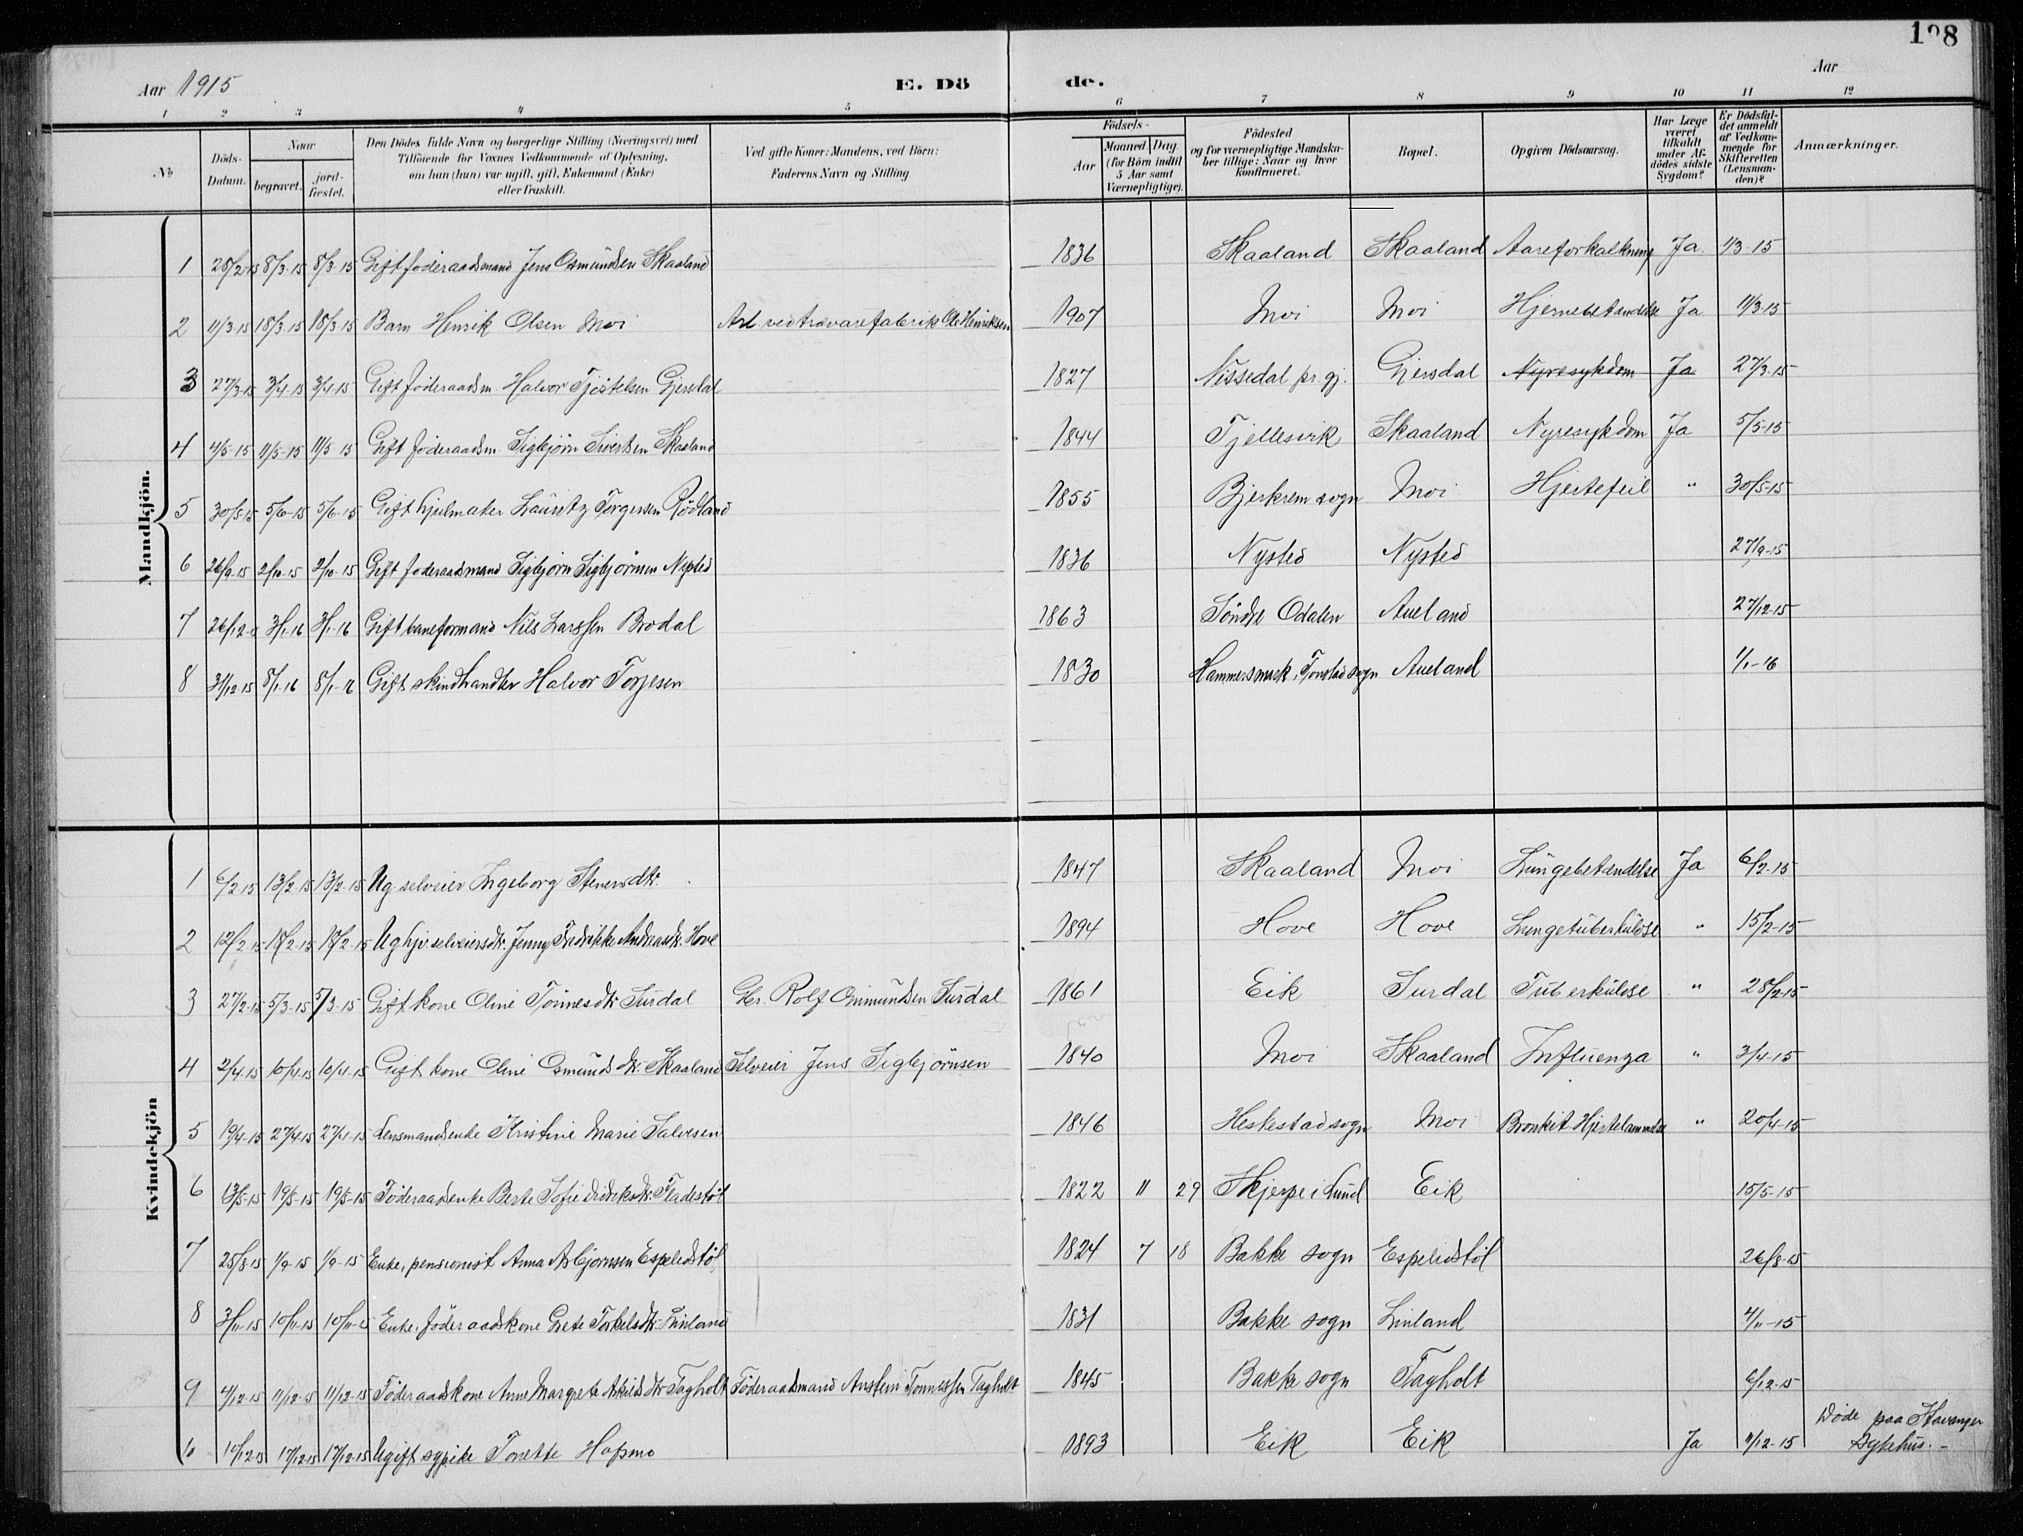 198
Aar 1915 E. Dö de. Aar
1 2 3 4 5 6 7 8 9 10 11 12
№ Döds-Datum. Naar begravet. jord-fæstet. Den Dödes fulde Navn og borgerlige Stilling (Næringsvei) med Tilföiende for Voxnes Vedkommende af Oplysning, om han (hun) var ugift, gift, Enkemand (Enke) eller fraskilt. Ved gifte Koner: Mandens, ved Börn: Faderens Navn og Stilling. Födsels- Aar Maaned Dag (for Börn indtil 5 Aar samt Værnepligtige). Födested og for værnepligtige Mandskaber tillige: Naar og hvor konfirmeret. Bopæl. Opgiven Dödsaarsag. Har Læge været tilkaldt under Afdödes sidste Sygdom? Er Dödsfaldet anmeldt af Vedkommende for Skifteretten (Lensmanden)? Anmærkninger.
Mandkjön.
1 28/2-15 8/3-15 8/3-15 Gift föderaadsmand Jens Osmundsen Skaaland 1836 Skaaland Skaaland Aareforkalkning Ja 1/3-15
2 11/3-15 18/3-15 18/3-15 Barn Henrik Olsen Moi Arb. ved trævarefabrik Ole Henriksen 1907 Moi Moi Hjernebetændelse Ja 11/3-15
3 27/3-15 3/4-15 3/4-15 Gift föderaadsm. Halvor Tjöstelsen Gjersdal 1827 Nissedal pr.gj. Gjersdal Nyresykdom Ja 27/3-15
4 4/5-15 11/5-15 11/5-15 Gift föderaadsm Sigbjörn Sivertsen Skaaland 1844 Fjellesvik Skaaland Nyresykdom Ja 5/5-15
5 30/5-15 5/6-15 5/6-15 Gift hjulmaker Lauritz Torgersen Rödland 1855 Bjerkrem sogn Moi Hjertefeil " 30/5-15
6 26/9-15 2/10-15 2/10-15 Gift föderaadsmand Sigbjörn Sigbjörnsen Nysted 1836 Nysted Nysted 27/9-15
7 26/12-15 3/1-16 3/1-16 Gift baneformand Nils Larssen Brodal 1863 Söndre Odalen Aueland 27/12-15
8 31/12-15 8/1-16 8/1-16 Gift skindhandler Halvor Torjesen 1830 Hammersmark, Tonstad sogn Aueland 1/1-16
Kvindekjön
1 6/2-15 13/2-15 13/2-15 Ug. selveier Ingeborg Stenersdtr. 1847 Skaaland Moi Lungebetændelse Ja 6/2-15
2 12/2-15 18/2-15 18/2-15 Ug hjv selveiersdtr. Jenny Fredrikke Andreasdtr. Hove 1894 Hove Hove Lungetuberkulose " 15/2-15
3 27/2-15 5/3-15 5/3-15 Gift kone Oline Tönnesdtr Surdal Gbr. Rolf Omundsen Surdal 1861 Eik Surdal Tuberkulose " 28/2-15
4 2/4-15 10/4-15 10/4-15 Gift kone Oline Osmundsdtr. Skaaland Selveier Jens Sigbjörnsen 1840 Moi Skaaland Influenza " 3/4-15
5 19/4-15 27/4-15 27/4-15 Lensmandsenke Kristine Marie Salvesen 1846 Heskestad sogn Moi Bronkit Hjertelammelse " 20/4-15
6 13/5-15 19/5-15 19/5-15 Föderaadenke Berte Sofie Didriksdtr. Fladestöl 1822 11 29 Skjerpe i Lund Eik 15/5-15
7 25/8-15 1/9-15 1/9-15 Enke, pensionist Anna Asbjørnsen Espelidstöl 1824 7 18 Bakke sogn Espelidstöl 26/8-15
8 3/11-15 10/11-15 10/11-15 Enke, föderaadskone Grete Torkelsdtr. Linland 1831 Bakke sogn Linland 4/11-15
9 4/12-15 11/12-15 11/12-15 Föderaadskone Anne Margrete Askildsdtr Tagholt Föderaadsmand Anstein Tönnessen Tagholt 1845 Bakke sogn Tagholt 6/12-15
10 10/12-15 17/12-15 17/12-15 Ugift sypike Tonette Hofsmo 1893 Eik Eik Ja 11/12-15 Døde paa Stavanger Sykehus.-